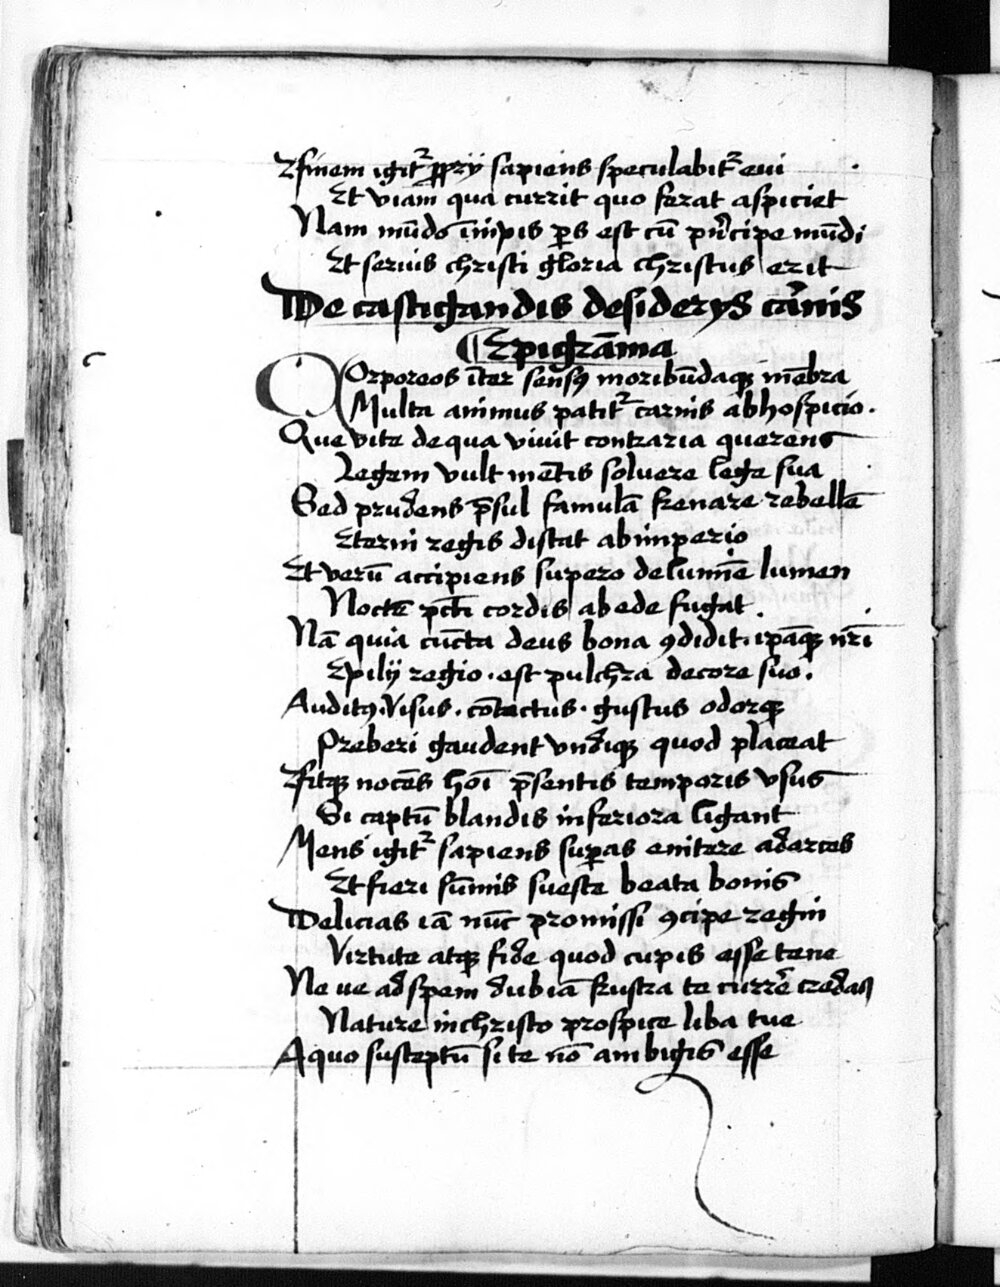 Zfinem igit᷑ ꝓprij sapiens speculabit᷑ eui
Et viam qua currit quo ferat aspiciet
Nam mūdo īmpijs ꝑs est cū prīcipe mūdi
Et seruis christi gloria christus erit
De castigandis desiderijs cárnis
Epigrāma
Corporeos īter sensꝯ moribūdaqꝫ mēbra
Multa animus patit᷑ carnis ab hospicio.
Que vite de qua viuit contraria querens
Legem vult mētis soluere lege sua
Sed prudens p̄sul famulā frenare rebellē
Eterni regis distat ab imperio
Et verū accipiens supero de lumīe lumen
Noctē pctī cordis ab ede fugat.
Nā quia cūcta deus bona ꝯdidit. ipāqꝫ nr̄i
Epilij regio. est pulchra decore suo.
Auditꝯ. Visus. cōtactus. gustus odorqꝫ
Preberi gaudent vndiqꝫ quod placeat
Zfitqꝫ nocēs hoī p̄sentis temporis vsus
Si captū blandis inferiora ligant
Mens igit᷑ sapiens suꝑas enitere ad arces
Et fieri sūmis sueste beata bonis
Delicias iā nūc promissi ꝯcipe regni
Virtute atqꝫ fide quod cupis esse tene
Ne ue ad spem dubiā frustra te currē credas
Nature in christo prospice liba tue
A quo susceptū si te nō ambigis esse